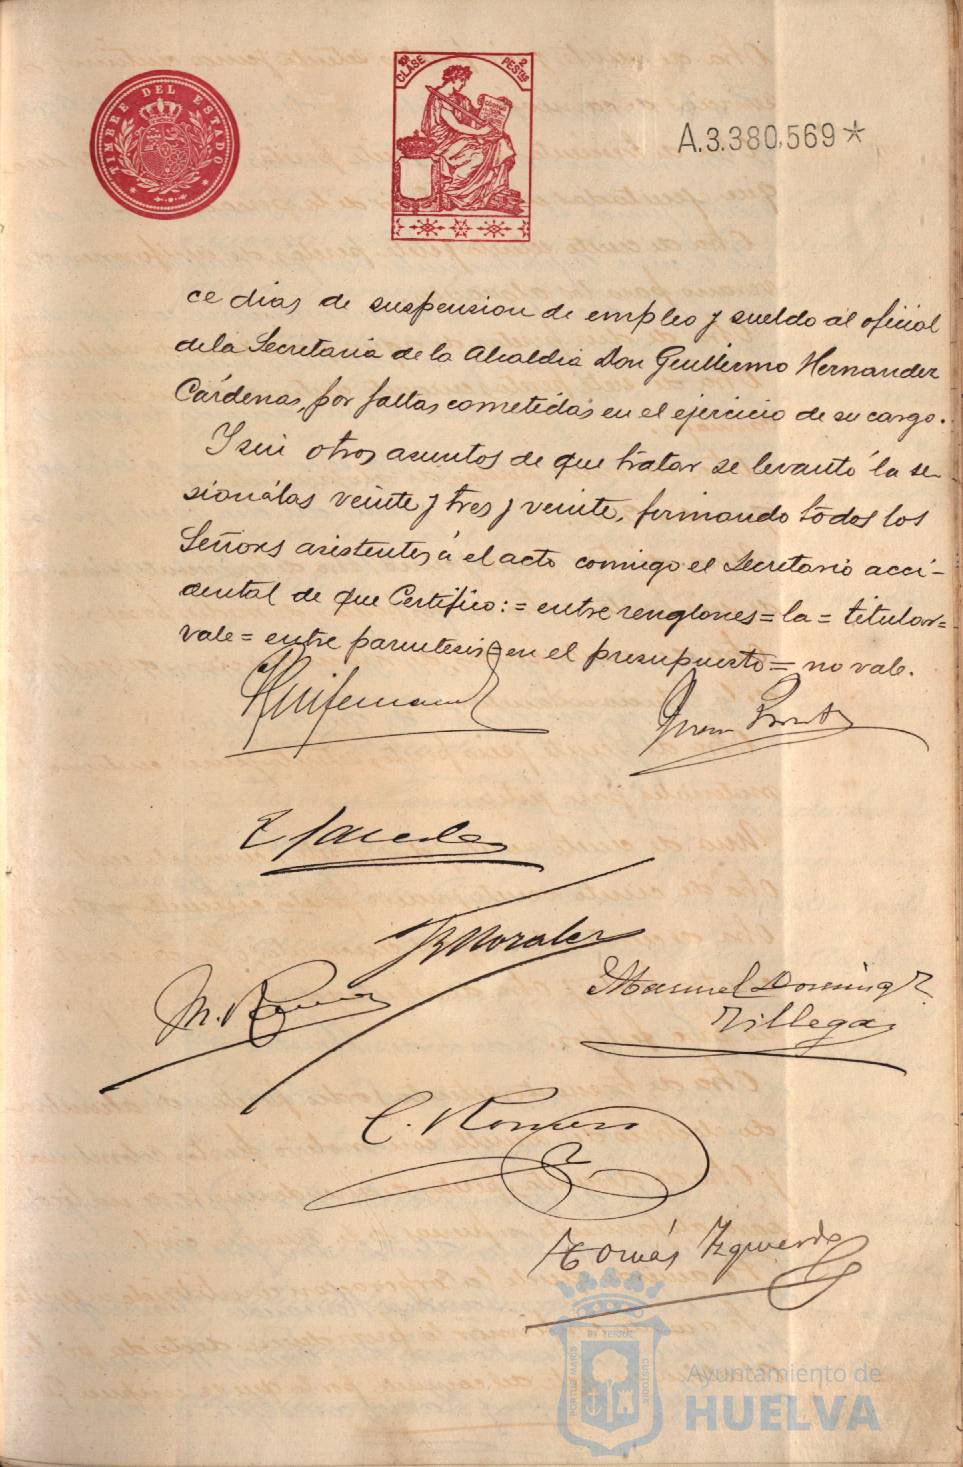 TIMBRE DEL ESTADO
10ª CLASE 2 PESTAS
A.3.380,569*
ce dias de suspension de empleo y sueldo al oficial
de la Secretaria de la Alcaldia Don Guillermo Hernandez
Cárdenas, por faltas cometidas en el ejercicio de su cargo.
Y sin otros asuntos de que tratar se levantó la se-
sion á las veinte y tres y veinte, firmando todos los
Señores asistentes á el acto conmigo el Secretario acci-
dental de que Certifico:= entre renglones= la = titular=
vale= entre parentesis= en el presupuesto= no vale.
Morales
M.
Manuel Doming
Villega
C. Romero
Tomás Izquierdo
PORTUS MARIS ET TERRAE CUSTODIA
Ayuntamiento de
HUELVA